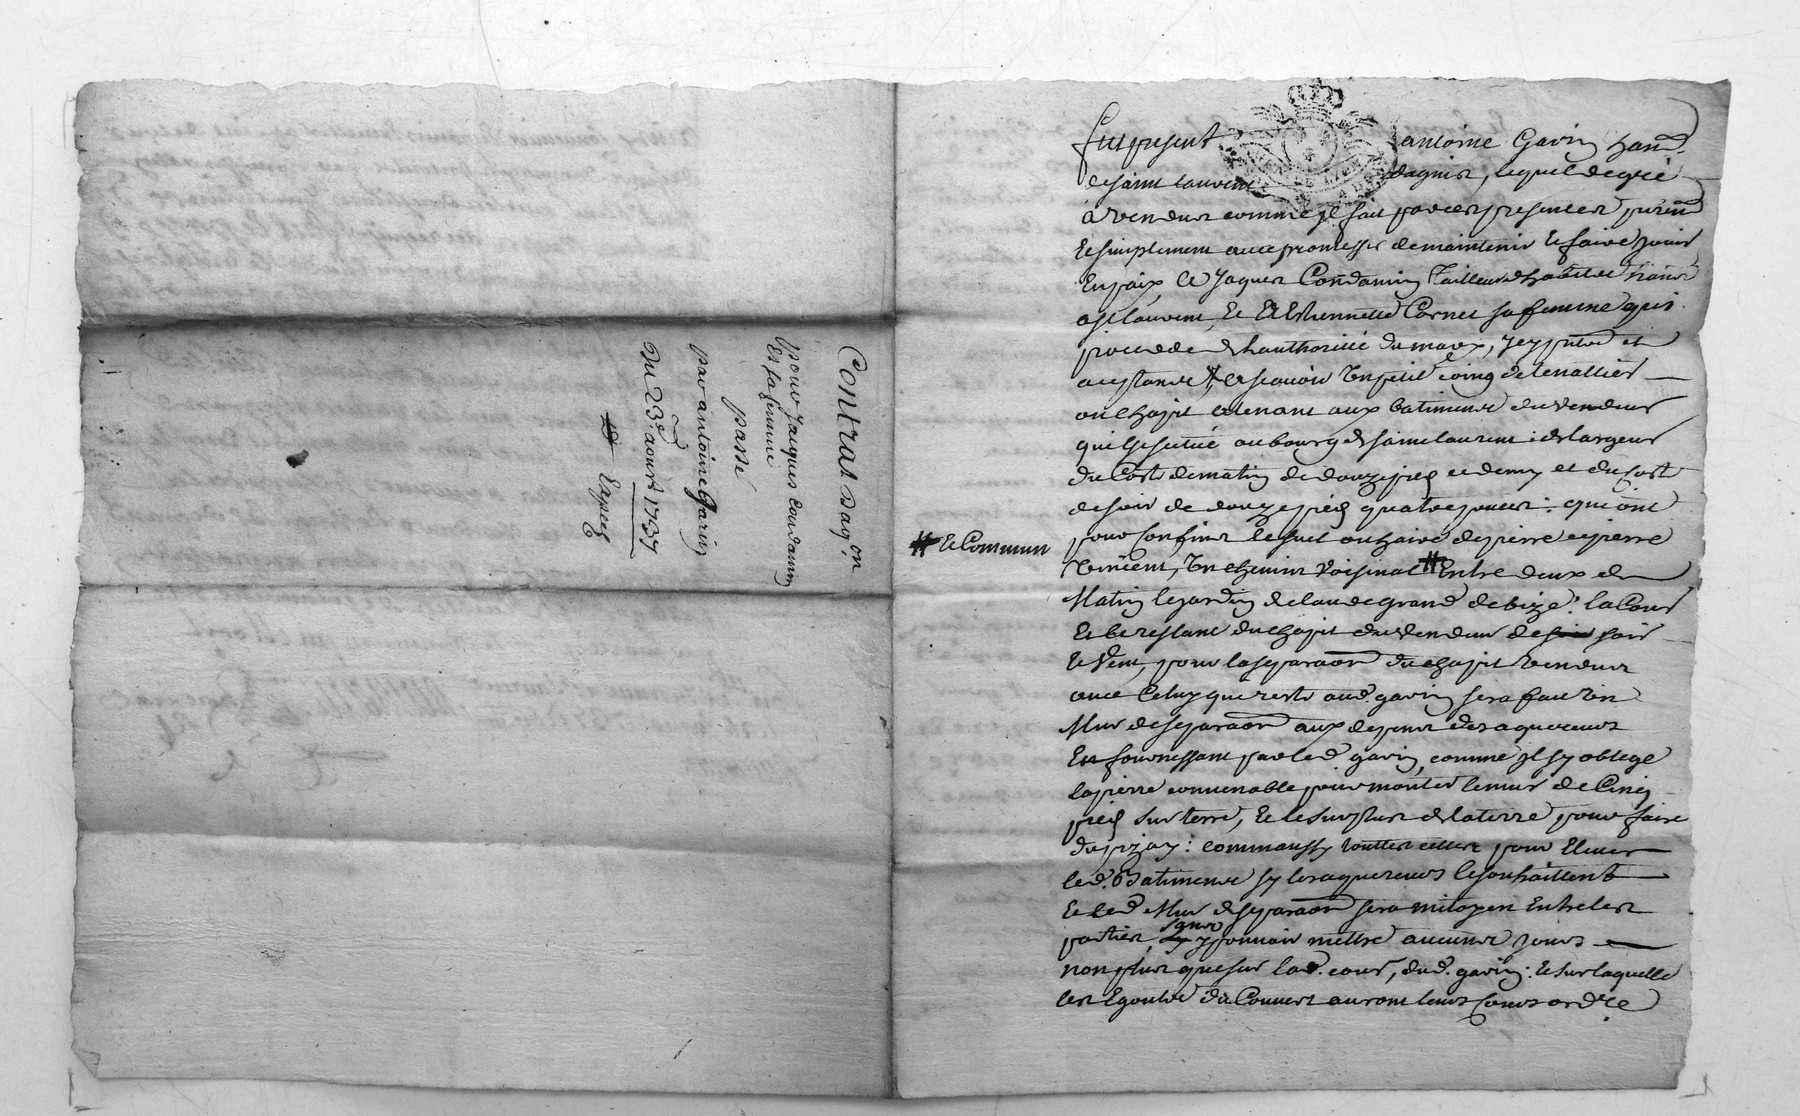 Contrat d'aq.on
pour Jacques Condamin
et sa femme
passé
par antoine Garin
Du 23e aoust 1737
Expeé
fut present antoine Garin hant
de saint laurent dagnier, lequel de gré
a vendu comme jl fait par ces presentes purem.t
et simplement avec promesse de maintenir et faire jouir
en paix a Jaques Condamin Tailleur d'habits hant
a st laurent, et Ethiennette Cornet sa femme qui
procede de l'hauthorité du mary, jcy present et
aceptants, a scavoir un petit coing de tenallier
ou chapit attenant aux batiments du vendeur
qu'il se situé au bourg de saint laurent : de largeur
du Costé de matin de douze pieds et demy et du costé
de soir de douze pieds quatre pouces : qui ont
pour confins le suel ou haire de pierre et pierre
vincent, un chemin voisinal # Entre deux de
# et Commun
Matin le jardin de laude grand de bize : la Cour
et le restant du chapit du vendeur de soir
et vent, pour la separaon du chapit vendu
avec celuy qui reste aud. garin sera fait un
Mur de separaon aux depens des aquereurs
en fournissant par led. garin, comme jl sy oblige
la pierre convenable pour monter le mur de Cinq
pieds sur terre, et le surplus de la terre pour faire
du pizay : comm'aussy touttes celles pour Elever
led. Batiment sy les aquereurs le souhaittent
et led. Mur de separaon sera mitoyen Entre les
parties, sans y pouvoir mettre aucuns jours
non plus que sur lad. cour, dud. garin : et sur laquelle
les Egouts du Couvert auront leurs cours ord.re